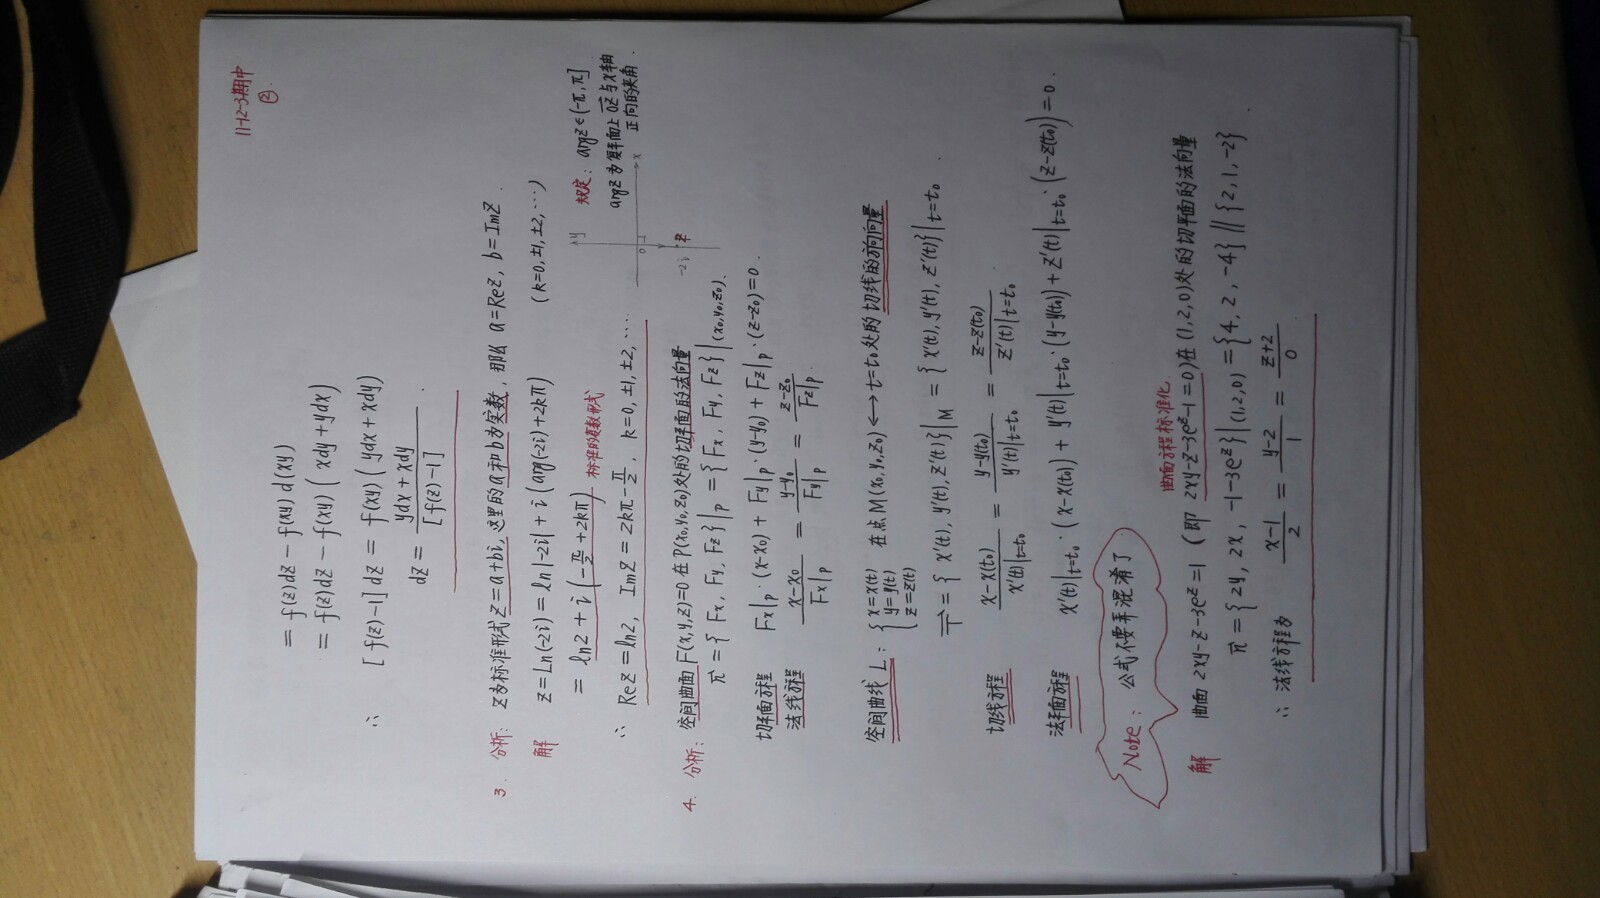 11-12-3期中
②
= f(z)dz - f(xy)d(xy)
= f(z)dz - f(xy)(xdy+ydx)
∴ [f(z)-1]dz = f(xy)(ydx+xdy)
dz = \frac{ydx+xdy}{[f(z)-1]}.
3. 分析: z为标准形式z=a+bi,这里的a和b为实数,那么 a=Rez, b=Imz.
解 z=Ln(-2i)=ln|-2i|+i(arg(-2i)+2kπ) (k=0,±1,±2,…)
= ln2+i(-\frac{π}{2}+2kπ) 标准的复数形式
∴ Rez=ln2, Imz=2kπ-\frac{π}{2}, k=0,±1,±2,…
规定: argz∈(-π,π]
argz为复平面上OZ与x轴
正向的夹角.
y
0 1 x
-2i z
4. 分析: 空间曲面F(x,y,z)=0在P(x₀,y₀,z₀)处的切平面的法向量
n⃗={Fx,Fy,Fz}|p={Fx,Fy,Fz}|(x₀,y₀,z₀).
切平面方程 Fx|p·(x-x₀)+Fy|p·(y-y₀)+Fz|p·(z-z₀)=0.
法线方程 \frac{x-x₀}{Fx|p}=\frac{y-y₀}{Fy|p}=\frac{z-z₀}{Fz|p}
空间曲线L: {x=x(t) y=y(t) z=z(t) 在点M(x₀,y₀,z₀)⟷t=t₀处的切线的方向向量
T⃗={x'(t),y'(t),z'(t)}|M={x'(t),y'(t),z'(t)}|t=t₀.
切线方程 \frac{x-x(t₀)}{x'(t)|t=t₀}=\frac{y-y(t₀)}{y'(t)|t=t₀}=\frac{z-z(t₀)}{z'(t)|t=t₀}
法平面方程 x'(t)|t=t₀·(x-x(t₀))+y'(t)|t=t₀·(y-y(t₀))+z'(t)|t=t₀·(z-z(t₀))=0.
Note: 公式不要弄混淆了.
曲面方程标准化
解 曲面 2xy-z-3e^z=1 (即 2xy-z-3e^z-1=0)在(1,2,0)处的切平面的法向量
n⃗={2y,2x,-1-3e^z}|(1,2,0)={4,2,-4}∥{2,1,-2}
∴ 法线方程为 \frac{x-1}{2}=\frac{y-2}{1}=\frac{z+2}{0}